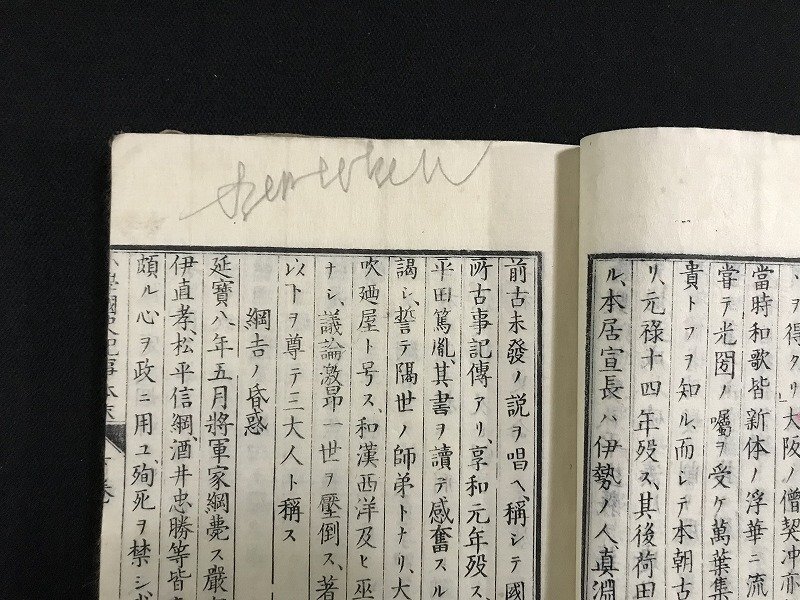 ヲ得タリ」大阪ノ僧契冲亦
當時和歌皆新体ノ浮華ニ流
嘗テ光圀ノ囑ヲ受ケ萬葉集
貴トフヲ知ル、而シテ本朝古
リ、元祿十四年歿ス、其後荷田
ル、本居宣長ハ伊勢ノ人、真淵
前古未發ノ説ヲ唱ヘ、稱シテ國
所古事記傳アリ、享和元年歿ス、
平田篤胤、其書ヲ讀テ感奮スル
謁シ、誓テ隔世ノ師弟トナリ、大
吹廼屋ト号ス、和漢西洋及ヒ巫
ナシ、議論激昂一世ヲ壓倒ス、著
以下ヲ尊テ三大人ト稱ス
綱吉ノ昏惑
延寶八年五月將軍家綱薨ス嚴
伊直孝、松平信綱、酒井忠勝等皆
頗ル心ヲ政ニ用ユ、殉死ヲ禁シ